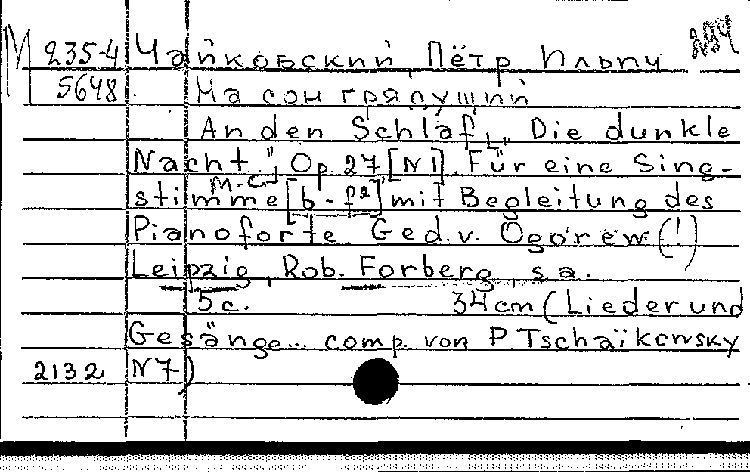 М 235-4 Чайковский, Пётр Ильич
5648 На сон грядущий
An den Schlaf [„Die dunkle
Nacht"] Op. 27 [N1]. Für eine Sing-
M-c.
stimme [b-f²] mit Begleitung des
Pianoforte Ged. v. Ogorew (!)
Leipzig, Rob. Forberg, s.a.
5 c. 34 cm (Lieder und
Gesänge.. comp. von P. Tschaïkowsky
2132 N7)